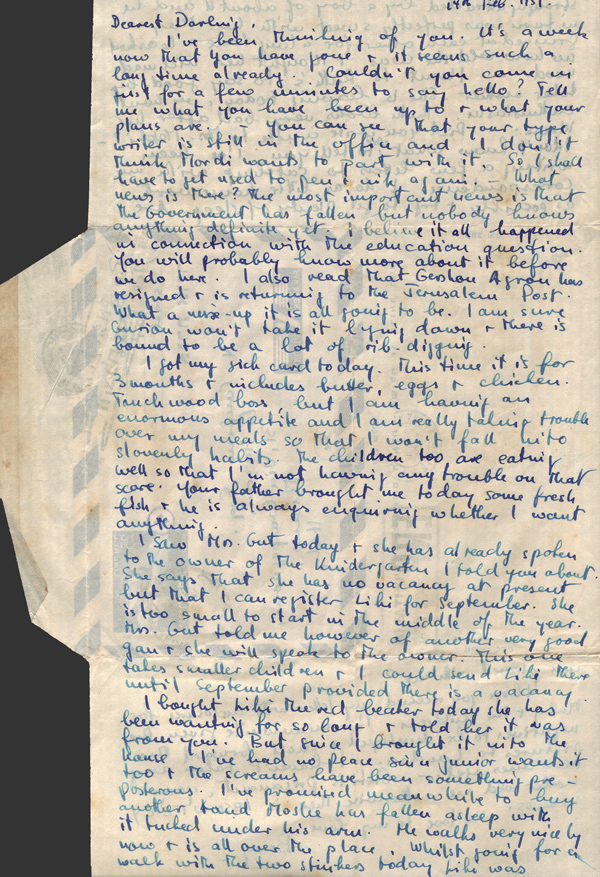 14th Feb. 1951.
Dearest Darling,
I've been thinking of you. It's a week
now that you have gone & it seems such a
long time already. Couldn't you come in
just for a few minutes to say hello? Tell
me what you have been up to & what your
plans are. – You can see that your type
writer is still in the office and I don't
think Mordi wants to part with it. So I shall
have to get used to pen & ink again. – What
news is there? The most important news is that
the Government has fallen but nobody knows
anything definite yet. I believe it all happened
in connection with the education question.
You will probably know more about it before
we do here. I also read that Gershon Agron has
resigned & is returning to the Jerusalem Post.
What a mess-up it is all going to be. I am sure
Gurion won't take it lying down & there is
bound to be a lot of rib-digging.
I got my sick card today. This time it is for
3 months & includes butter, eggs & chicken.
Touch wood boss, but I am having an
enormous appetite and I am really taking trouble
over my meals so that I won't fall into
slovenly habits. The children too are eating
well so that I'm not having any trouble on that
score. Your father brought me today some fresh
fish & he is always enquiring whether I want
anything.
I saw Mrs. Gut today & she has already spoken
to the owner of the Kindergarten I told you about.
She says that she has no vacancy at present
but that I can register Liki for September. She
is too small to start in the middle of the year.
Mrs. Gut told me however of another very good
gan & she will speak to the owner. This one
takes smaller children & I could send Liki there
until September provided there is a vacancy.
I bought Liki the red beaker today she has
been wanting for so long & told her it was
from you. But since I brought it into the
house I've had no peace since junior wants it
too & the screams have been something pre-
posterous. I've promised meanwhile to buy
another, and Moshe has fallen asleep with
it tucked under his arm. He walks very nicely by
now & is all over the place. Whilst going for a
walk with the two stinkers today Liki was